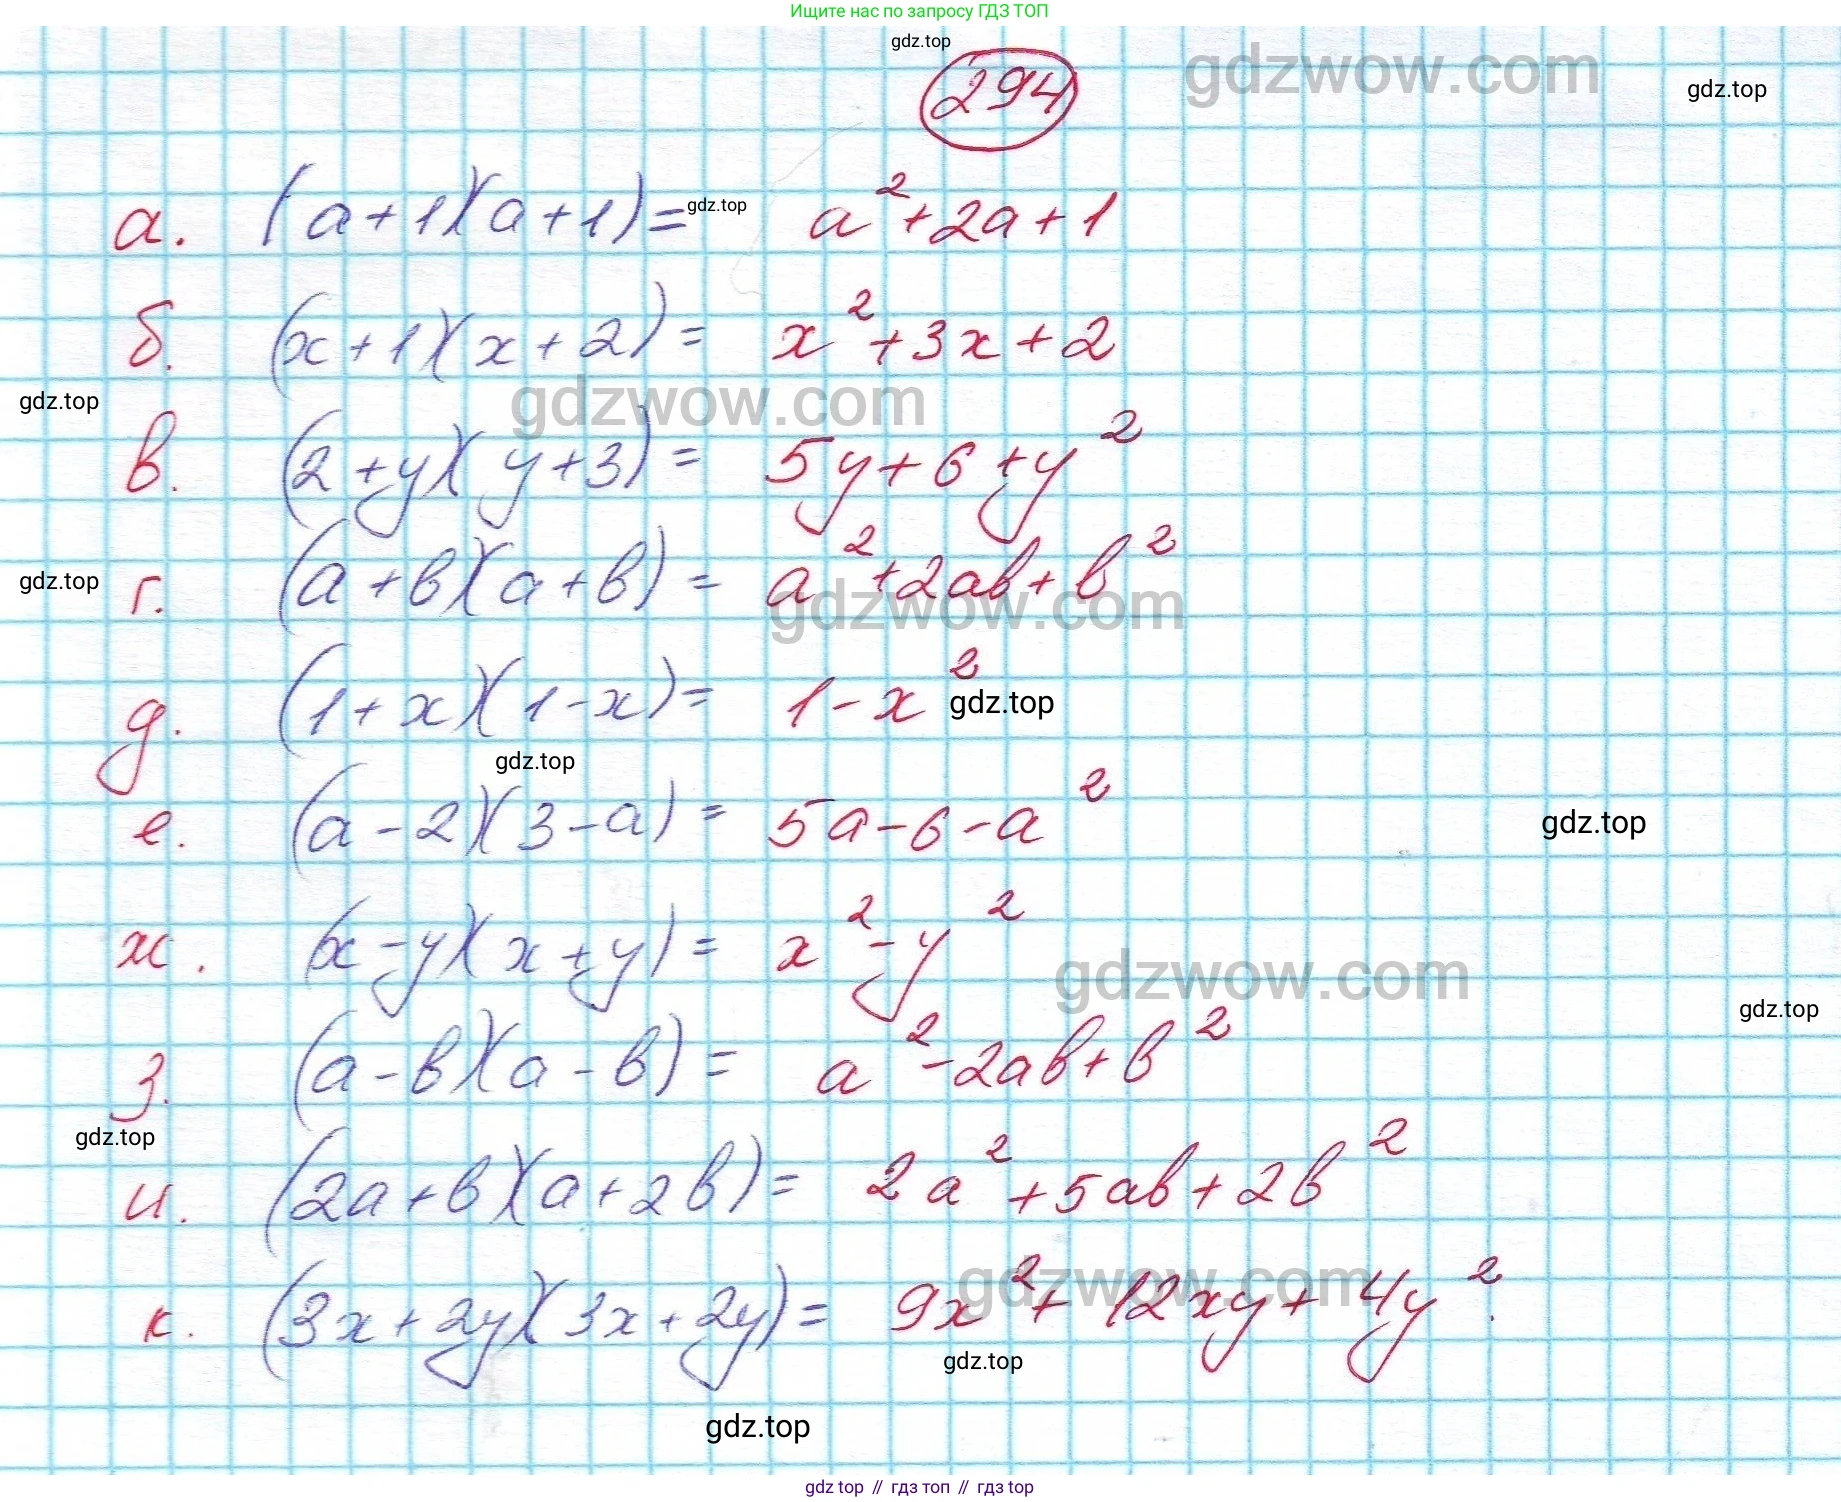 Ищите нас по запросу ГДЗ ТОП
gdz.top
294
gdzwow.com
gdz.top
а. (a+1)(a+1)= a²+2a+1
gdz.top
б. (x+1)(x+2)= x²+3x+2
gdz.top
gdzwow.com
в. (2+y)(y+3)= 5y+6+y²
г. (a+b)(a+b)= a²+2ab+b²
gdz.top
gdzwow.com
д. (1+x)(1-x)= 1-x²
gdz.top
gdz.top
е. (a-2)(3-a)= 5a-6-a²
gdz.top
ж. (x-y)(x+y)= x²-y²
gdzwow.com
gdz.top
з. (a-b)(a-b)= a²-2ab+b²
gdz.top
и. (2a+b)(a+2b)= 2a²+5ab+2b²
к. (3x+2y)(3x+2y)= 9x²+12xy+4y².
gdzwow.com
gdz.top
gdz.top
gdz.top // гдз топ // gdz.top